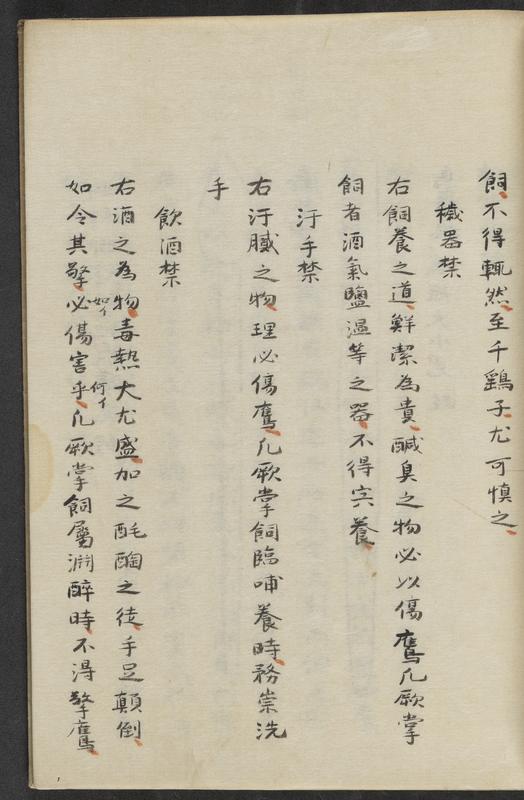 飼不得輙然至千鷄子尤可慎之
穢器禁
右飼養之道鮮潔為貴醎臭之物必以傷鷹凡厥掌
飼者酒氣鹽温等之器不得宍養
汙手禁
右汙膩之物理必傷鷹凡厥掌飼臨哺養時務崇洗
手
飲酒禁
右酒之為物毒熱大尤盛加之酕醄之徒手足顛倒
如イ
如令其擎必傷害乎凡厥掌飼屬淵醉時不得擎鷹
何イ